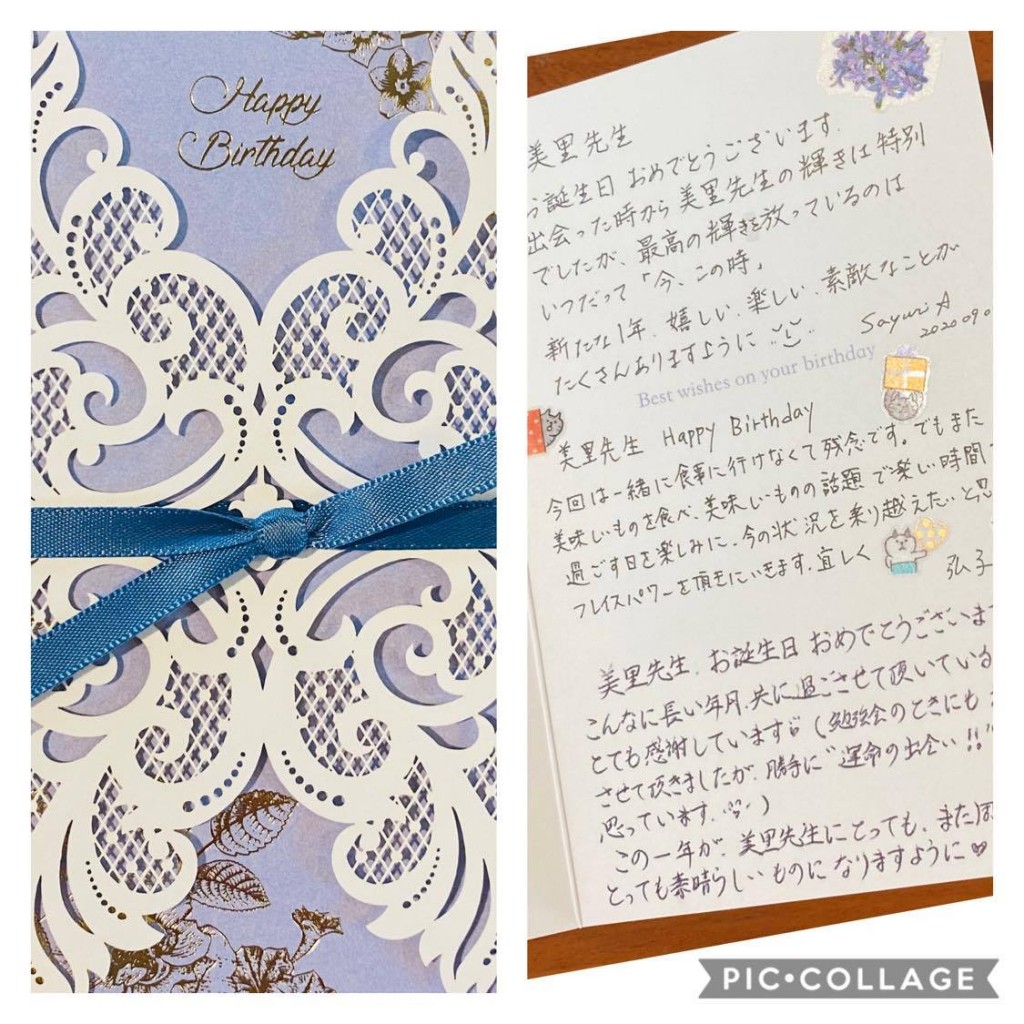 Happy
Birthday
美里先生
お誕生日 おめでとうございます.
出会った時から 美里先生の輝きは特別
でしたが、最高の輝きを放っているのは
いつだって「今、この時」
新たな1年、嬉しい、楽しい、素敵なことが
たくさんありますように
Sayuri A
2020 09 0
Best wishes on your birthday
美里先生 Happy Birthday
今回は一緒に食事に行けなくて残念です。でもまた
美味しいものを食べ、美味しいものの話題で楽しい時間
過ごす日を楽しみに、今の状況を乗り越えたいと思
フレイスパワーを頂きにいきます。宜しく
弘子
美里先生、お誕生日 おめでとうございま
こんなに長い年月、共に過ごさせて頂いている
とても感謝しています (勉強会のときにも
させて頂きましたが、勝手に"運命の出会い!!"
思っています. )
この一年が、美里先生にとっても、また
とっても素晴らしいものに なりますように♥
PIC•COLLAGE